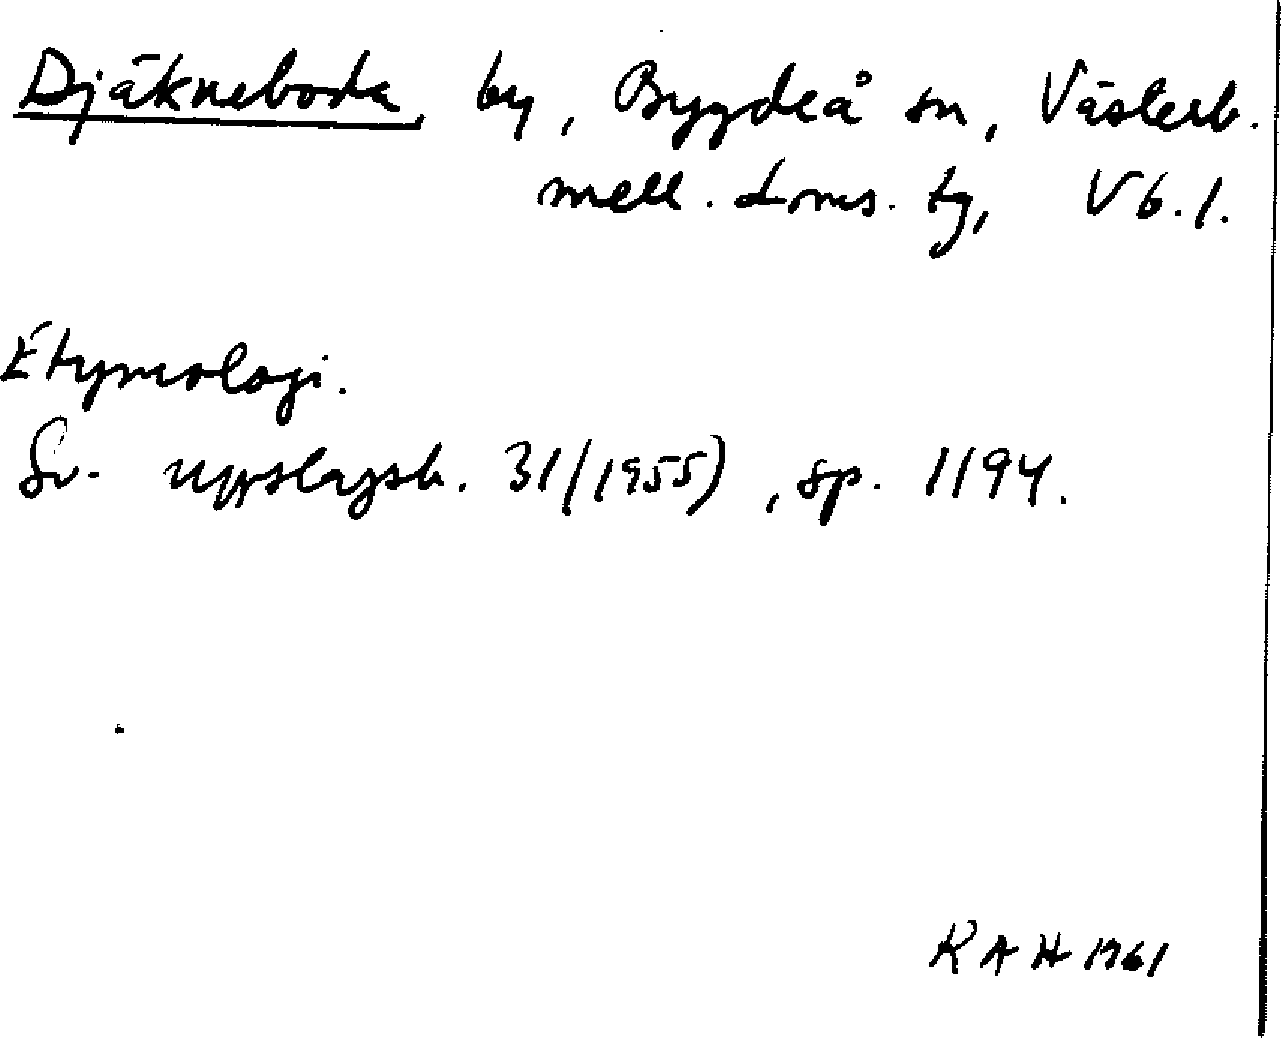 Djäkneboda, by, Bygdeå sn, Västerb.
mell. doms. tg, Vb.l.
Etymologi.
Sv. uppslagsb. 31 (1955), sp. 1194.
RAH 1961